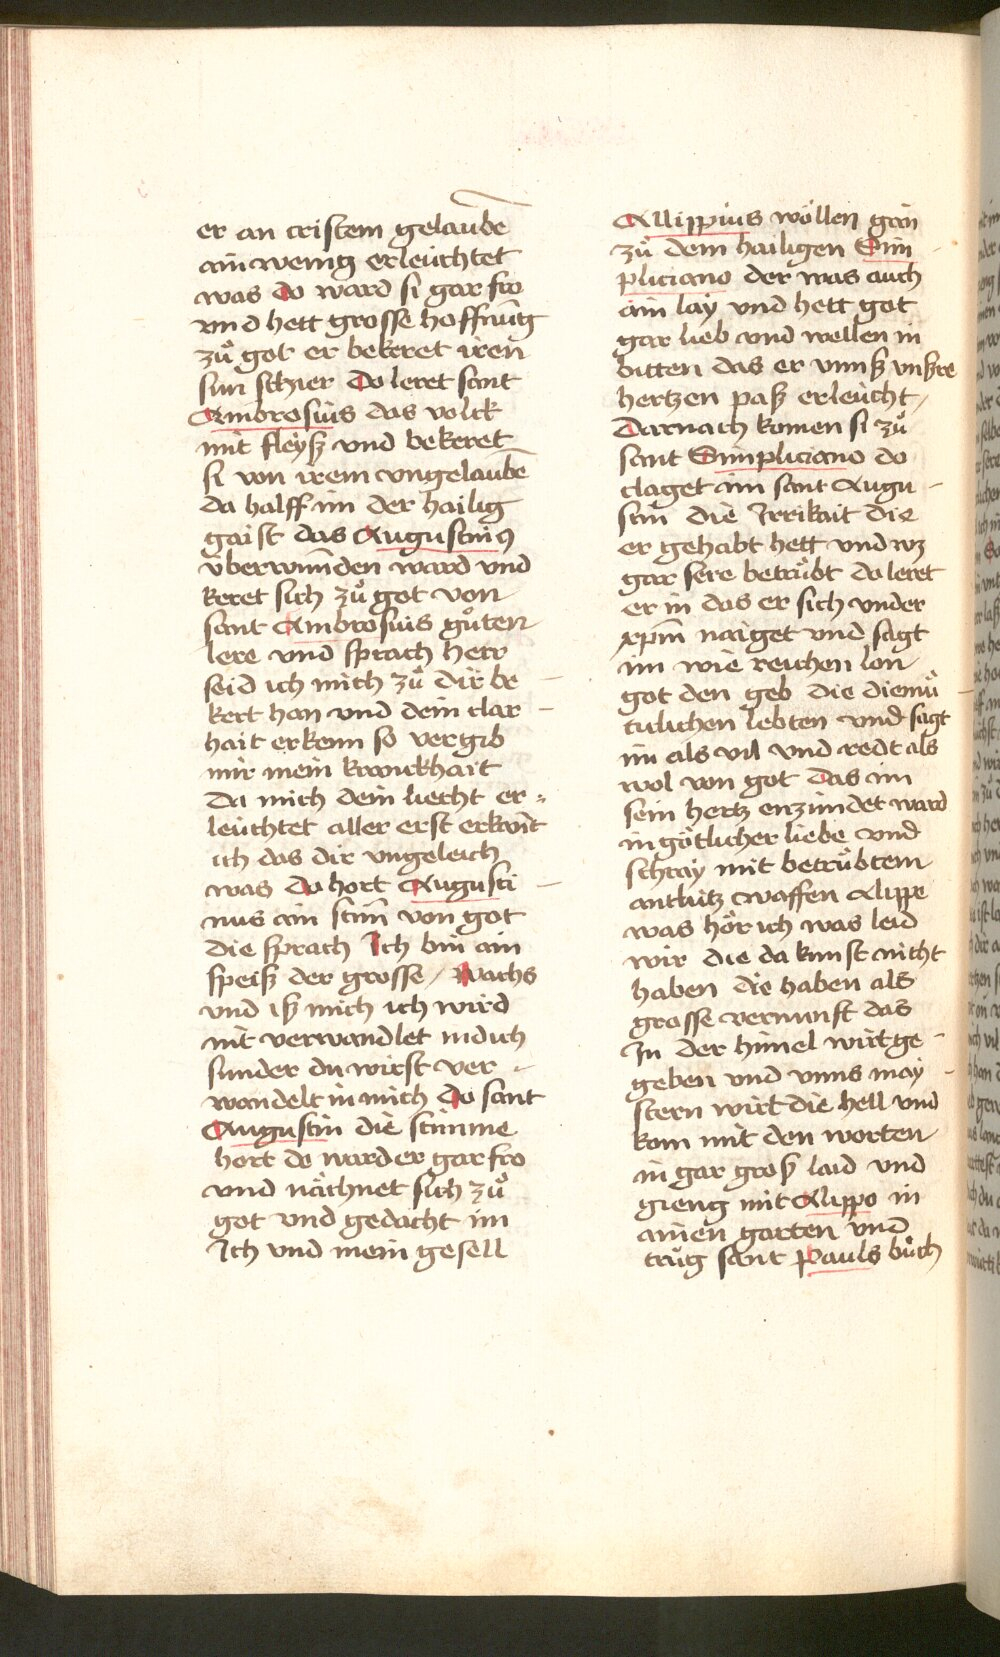 er an cristem gelaube
ain wenig erleuchtet
was do ward si gar fro
vnd hett grosse hoffnūg
zů got er bekeret iren
sun schier Do leret sant
Ambrosius das volck
mit fleyß vnd bekeret
si von irem vngelaubē
da halff im der hailig
gaist das Augustinꝰ
vberwunden ward vnd
keret sich zů got von
sant Ambrosius gůten
lere vnd sprach herr
seid ich mich zů dir be
kert han vnd dein clar
hait erkenn so vergib
mir mein kranckhait
Da mich dein liecht er
leuchtet aller erst erkant
ich das dir vngeleich
was do hort Augusti
nus ain stim̄ von got
die sprach Ich bin ain
speiß der grosse / Wachs
vnd iß mich ich wird
nit verwandlet in dich
sunder du wirst ver
wandelt in mich Do sant
Augustin die stimme
hort do ward er gar fro
vnd nächnet sich zů
got vnd gedacht im
Ich vnd mein gesell
Allippius wöllen gan
zů dem hailigen Sim
pliciano der was auch
ain lay vnd hett got
gar lieb vnd wellen in
bitten das er vnnß vnßre
hertzen paß erleucht /
Darnach komen si zů
sant Simpliciano do
claget im sant Augu
stin die Irrikait die
er gehabt hett vnd wz
gar sere betrůbt do leret
er in das er sich vnder
xp̄m naiget vnd sagt
im wie reichen lon
got den geb die diemů
tiklichen lebten vnd sagt
im als vil vnd redt als
wol von got Das im
sein hertz enzündet ward
in götlicher liebe vnd
schray mit betrůbtem
antlütz waffen Alippe
was hör ich was leid
wir die da kunst nicht
haben die haben als
grosse vernunft das
In der himel wirt ge
geben vnd vnns may
stern wirt die hell vnd
kom mit den worten
in gar groß laid vnd
gieng mit Alippo in
ainen garten vnd
trůg sant Pauls bůch